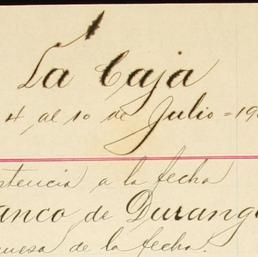 La Caja
4, al 10 de Julio = 19
stencia a la fecha
anco de Durang
uesa de la fecha.